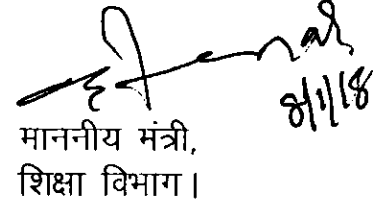 8/1/18
माननीय मंत्री,
शिक्षा विभाग।